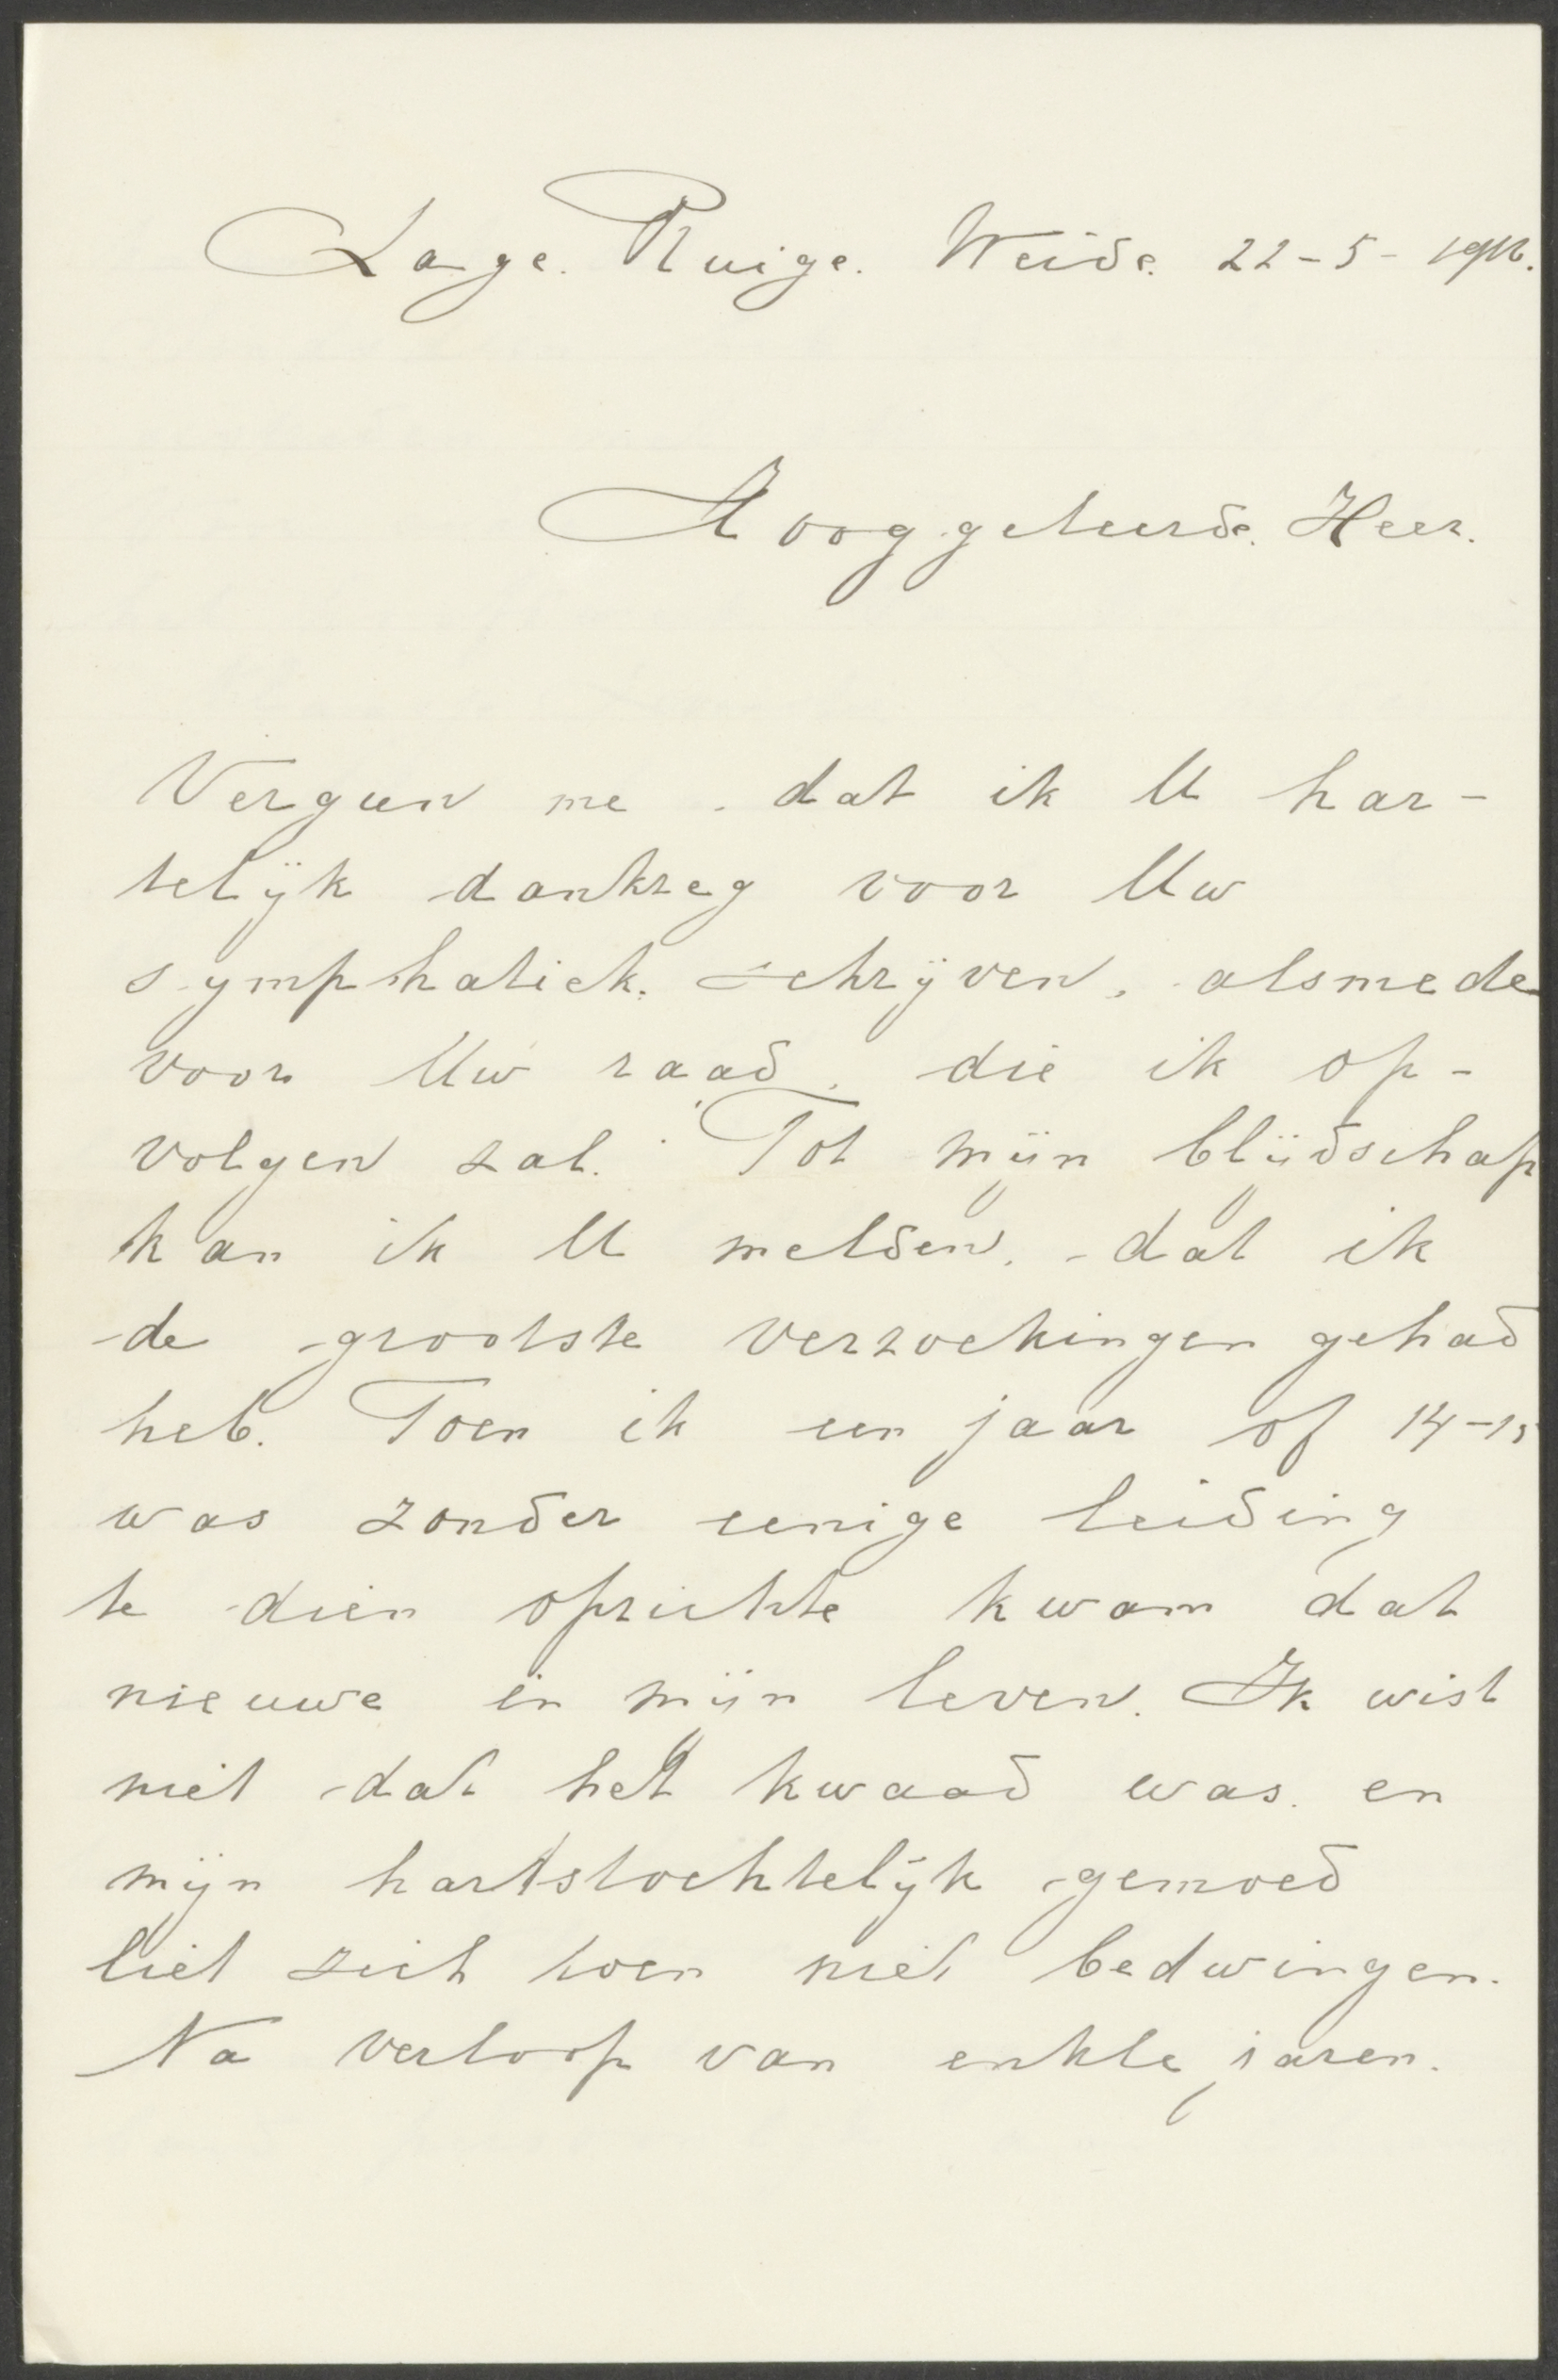 Lage. Ruige. Weide. 22-5-1916.
Hooggeleerde. Heer.
Vergun me. dat ik U har-
telijk dankzeg voor Uw
symphatiek. schrijven, alsmede
voor Uw raad, die ik op-
volgen zal. Tot mijn blijdschap
kan ik U melden, dat ik
de grootste verzoekingen gehad
heb. Toen ik een jaar of 14-15
was zonder eenige leiding
te dien opzichte kwam dat
nieuwe in mijn leven. Ik wist
niet dat het kwaad was. en
mijn hartstochtelijk gemoed
liet zich toen niet bedwingen.
Na verloop van enkle jaren.